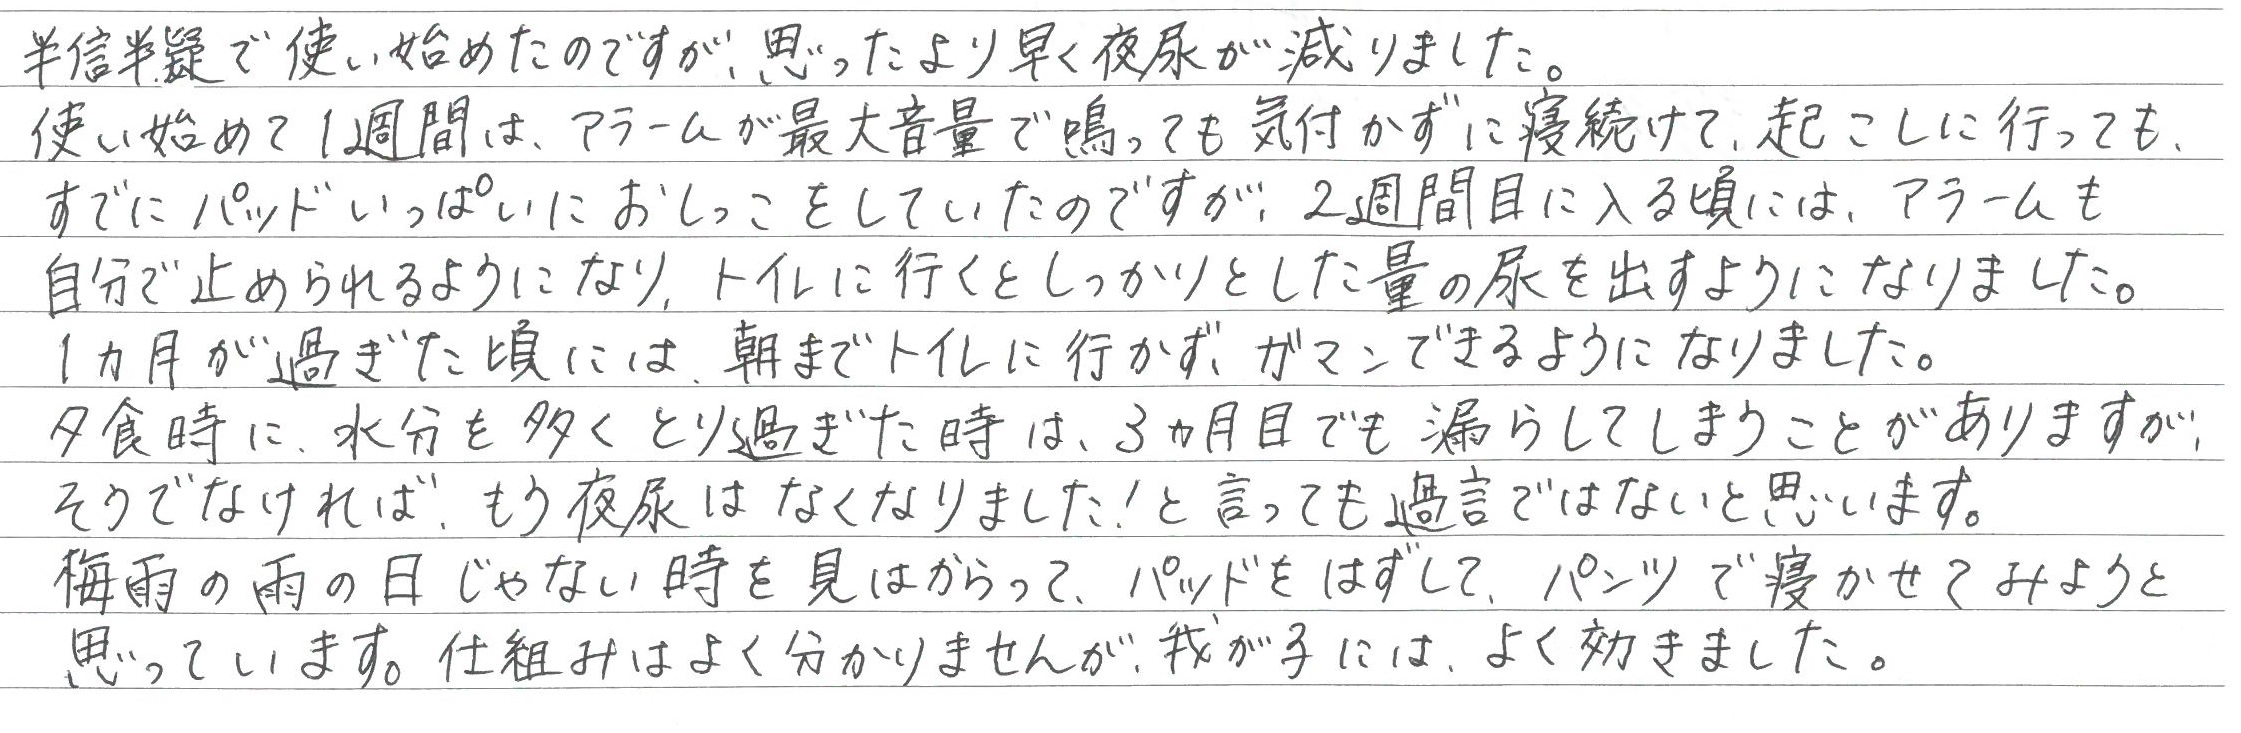 半信半疑で使い始めたのですが、思ったより早く夜尿が減りました。
使い始めて1週間は、アラームが最大音量で鳴っても気付かずに寝続けて、起こしに行っても、
すでにパッドいっぱいにおしっこをしていたのですが、2週間目に入る頃には、アラームも
自分で止められるようになり、トイレに行くとしっかりとした量の尿を出すようになりました。
1カ月が過ぎた頃には、朝までトイレに行かず、ガマンできるようになりました。
夕食時に、水分を多くとり過ぎた時は、3ヵ月目でも漏らしてしまうことがありますが、
そうでなければ、もう夜尿はなくなりました!と言っても過言ではないと思います。
梅雨の雨の日じゃない時を見はからって、パッドをはずして、パンツで寝かせてみようと
思っています。仕組みはよく分かりませんが、我が子には、よく効きました。